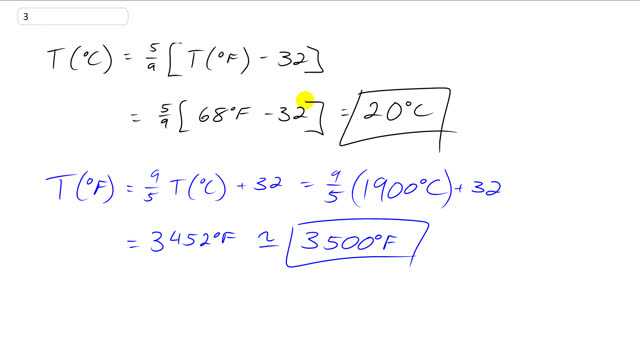 3
T(°C) = 5/9 [T(°F) - 32]
= 5/9 [68°F - 32] = 20°C
T(°F) = 9/5 T(°C) + 32 = 9/5 (1900°C) + 32
= 3452°F ≃ 3500°F